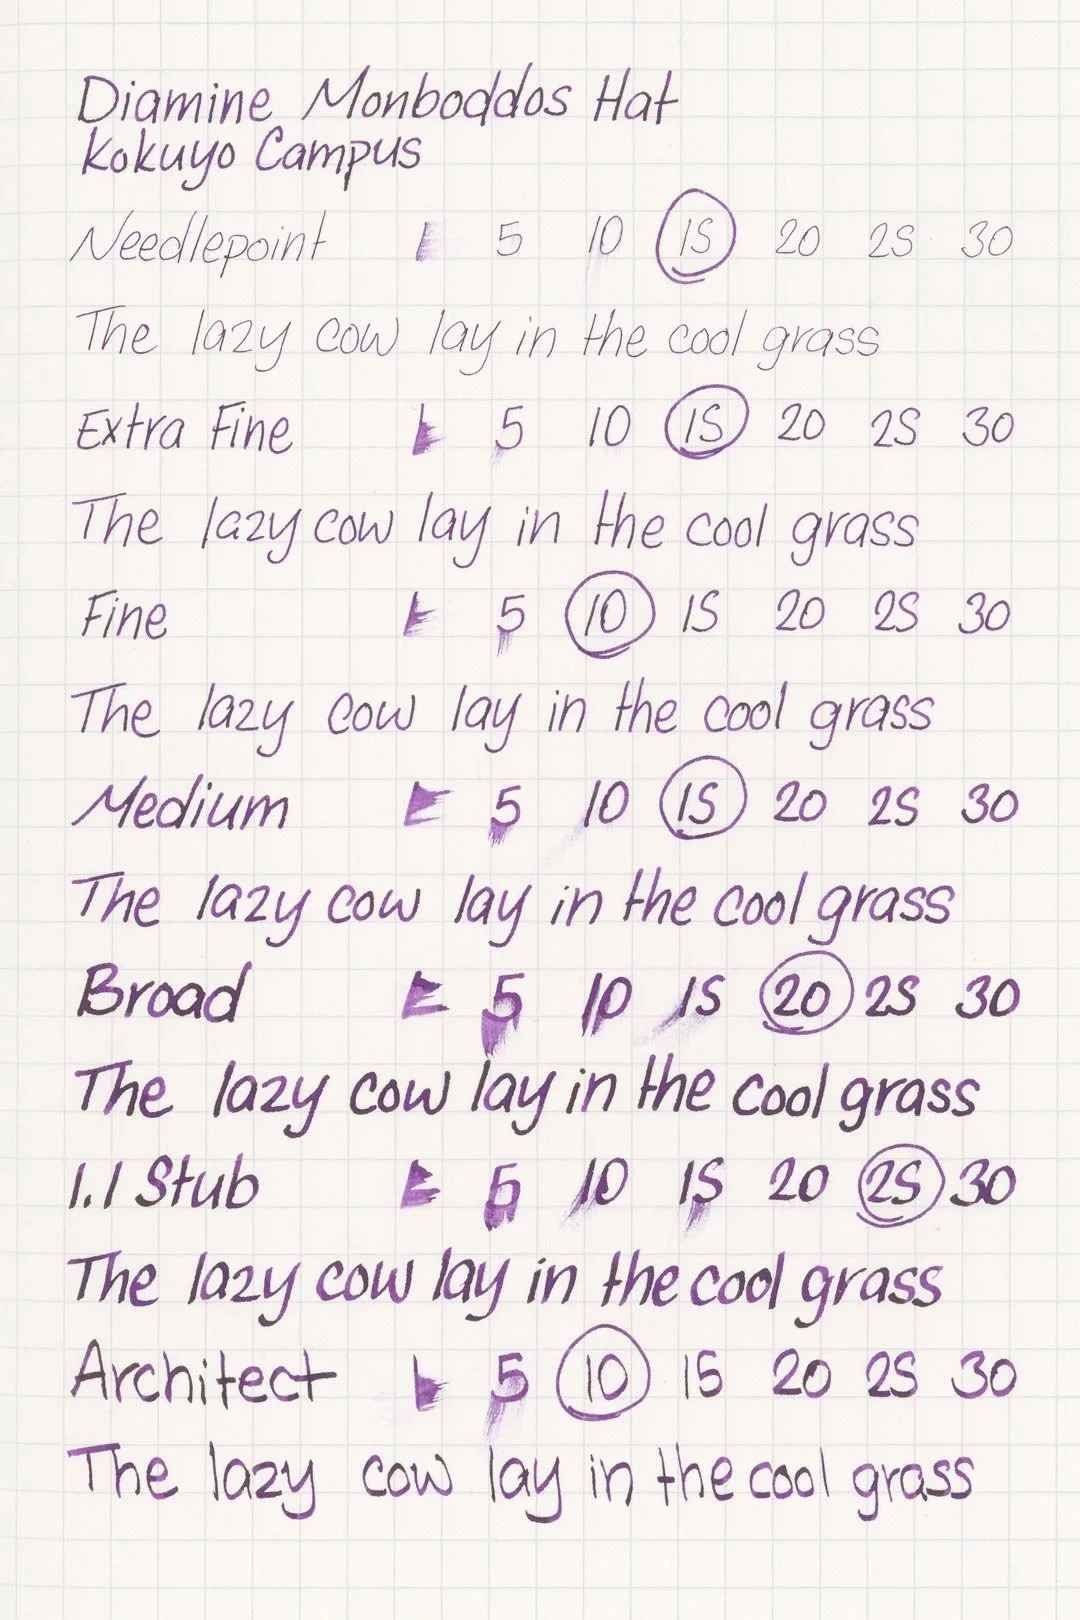 Diamine Monboddos Hat
Kokuyo Campus
Needlepoint 1 5 10 15 20 25 30
The lazy cow lay in the cool grass
Extra Fine 1 5 10 15 20 25 30
The lazy cow lay in the cool grass
Fine 1 5 10 15 20 25 30
The lazy cow lay in the cool grass
Medium 1 5 10 15 20 25 30
The lazy cow lay in the cool grass
Broad 1 5 10 15 20 25 30
The lazy cow lay in the cool grass
1.1 Stub 1 5 10 15 20 25 30
The lazy cow lay in the cool grass
Architect 1 5 10 15 20 25 30
The lazy cow lay in the cool grass